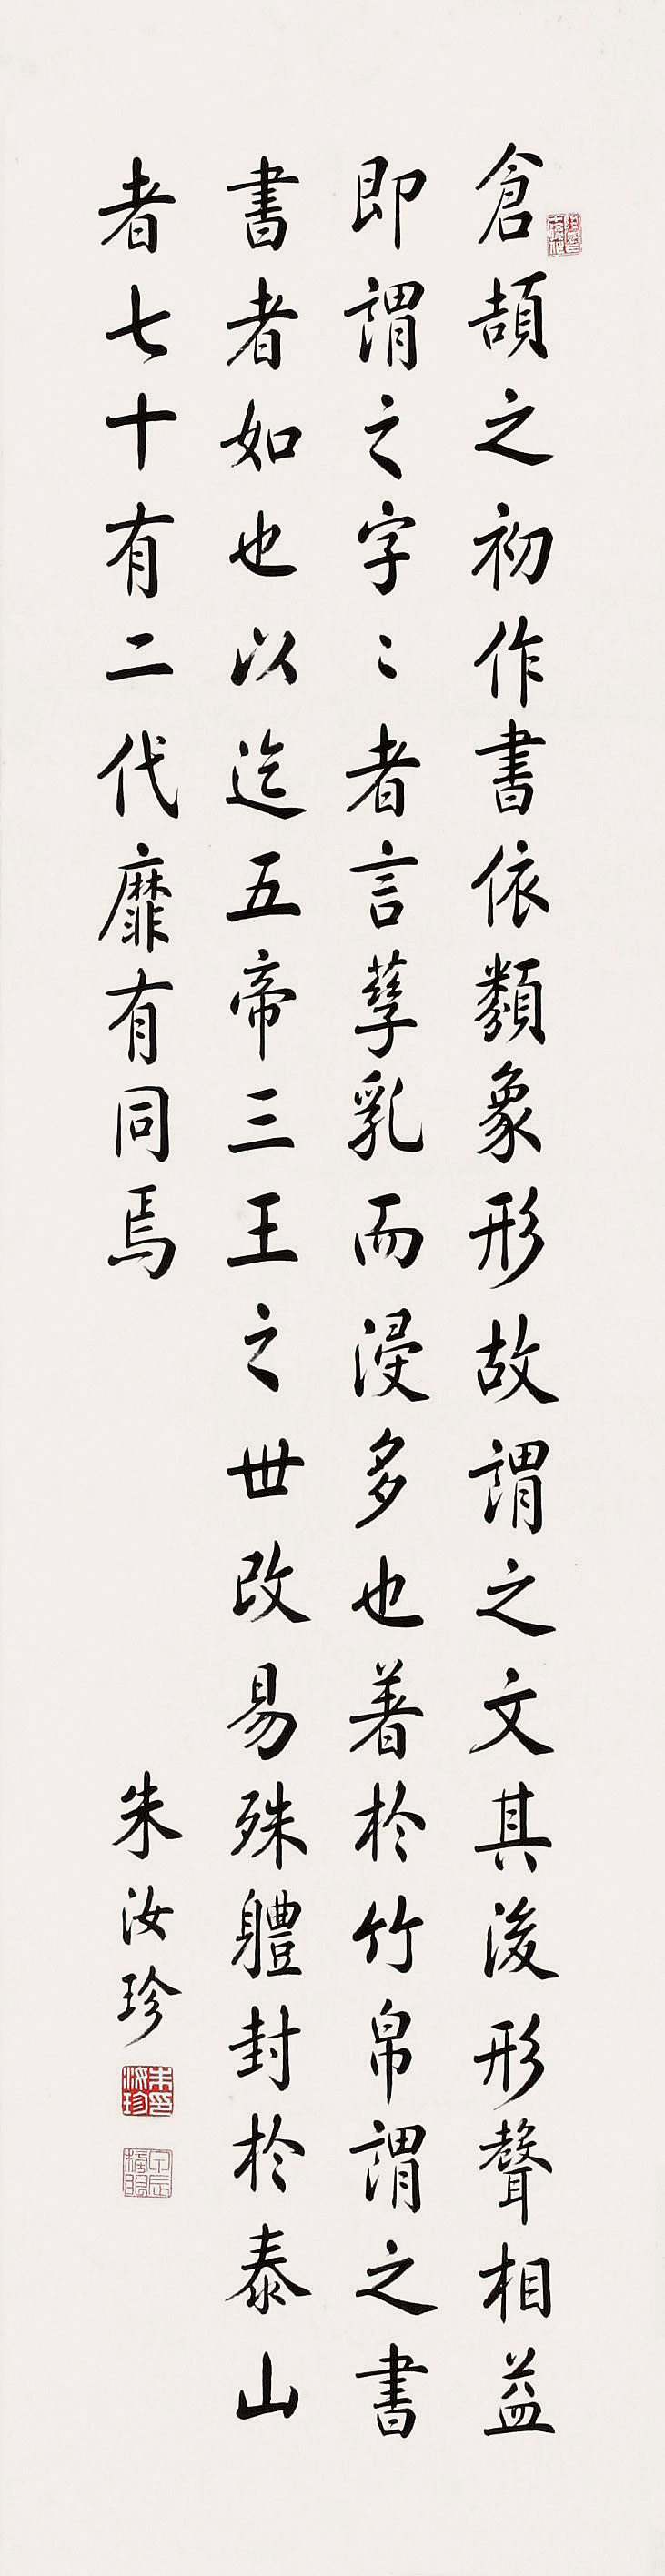 倉頡之初作書依類象形故謂之文其後形聲相益
即謂之字〻者言孳乳而浸多也著於竹帛謂之書
書者如也以迄五帝三王之世改易殊體封於泰山
者七十有二代靡有同焉
朱汝珍
朱印汝珍
甲辰榜眼